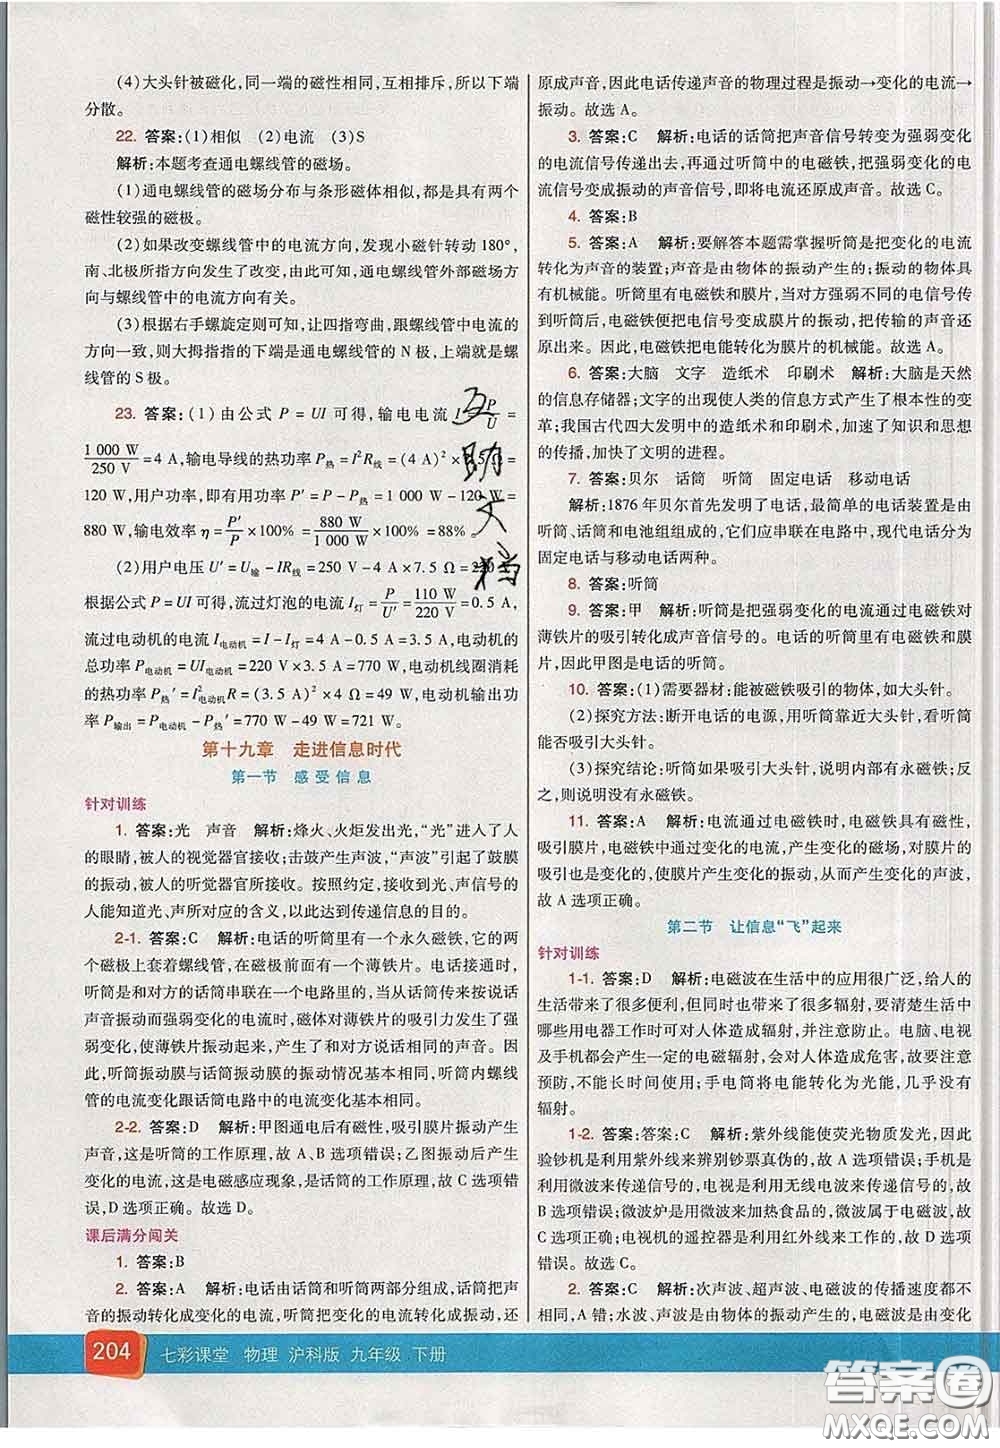 (4)大头针被磁化,同一端的磁性相同,互相排斥,所以下端
分散。
22. 答案:(1)相似 (2)电流 (3)S
解析:本题考查通电螺线管的磁场。
(1)通电螺线管的磁场分布与条形磁体相似,都是具有两个
磁性较强的磁极。
(2)如果改变螺线管中的电流方向,发现小磁针转动180°,
南、北极所指方向发生了改变,由此可知,通电螺线管外部磁场方
向与螺线管中的电流方向有关。
(3)根据右手螺旋定则可知,让四指弯曲,跟螺线管中电流的
方向一致,则大拇指指的下端是通电螺线管的 N 极,上端就是螺
线管的 S 极。
23. 答案:(1)由公式 P = UI 可得,输电电流 I = P/U =
1 000 W/250 V = 4 A,输电导线的热功率 P热 = I²R线 = (4 A)² × 7.5 Ω =
120 W,用户功率,即有用功率 P′ = P − P热 = 1 000 W − 120 W =
880 W,输电效率 η = P′/P × 100% = 880 W/1 000 W × 100% = 88%。
(2)用户电压 U′ = U输 − IR线 = 250 V − 4 A × 7.5 Ω = 220 V,
根据公式 P = UI 可得,流过灯泡的电流 I灯 = P/U′ = 110 W/220 V = 0.5 A,
流过电动机的电流 I电动机 = I − I灯 = 4 A − 0.5 A = 3.5 A,电动机的
总功率 P电动机 = UI电动机 = 220 V × 3.5 A = 770 W,电动机线圈消耗
的热功率 P热′ = I²电动机R = (3.5 A)² × 4 Ω = 49 W,电动机输出功
率 P输出 = P电动机 − P热′ = 770 W − 49 W = 721 W。
第十九章 走进信息时代
第一节 感受信息
针对训练
1. 答案:光 声音 解析:烽火、火炬发出光,“光”进入了人
的眼睛,被人的视觉器官接收;击鼓产生声波,“声波”引起了鼓膜
的振动,被人的听觉器官所接收。按照约定,接收到光、声信号的
人能知道光、声所对应的含义,以此达到传递信息的目的。
2-1. 答案:C 解析:电话的听筒里有一个永久磁铁,它的两
个磁极上套着螺线管,在磁极前面有一个薄铁片。电话接通时,
听筒是和对方的话筒串联在一个电路里的,当从话筒传来随说话
声音振动而强弱变化的电流时,磁体对薄铁片的吸引力发生了强
弱变化,使薄铁片振动起来,产生了和对方说话相同的声音。因
此,听筒振动膜与话筒振动膜的振动情况基本相同,听筒内螺线
管的电流变化跟话筒电路中的电流变化基本相同。
2-2. 答案:D 解析:甲图通电后有磁性,吸引膜片振动产生
声音,这是听筒的工作原理,故 A、B 选项错误;乙图振动后产生
变化的电流,这是电磁感应现象,是话筒的工作原理,故 C 选项错
误,D 选项正确。故选 D。
课后满分闯关
1. 答案:B
2. 答案:A 解析:电话由话筒和听筒两部分组成,话筒把声
音的振动转化成变化的电流,听筒把变化的电流转化成振动,还
原成声音,因此电话传递声音的物理过程是振动→变化的电流→
振动。故选 A。
3. 答案:C 解析:电话的话筒把声音信号转变为强弱变化
的电流信号传递出去,再通过听筒中的电磁铁,把强弱变化的电
流信号变成振动的声音信号,即将电流还原成声音。故选 C。
4. 答案:B
5. 答案:A 解析:要解答本题需掌握听筒是把变化的电流
转化为声音的装置;声音是由物体的振动产生的;振动的物体具
有机械能。听筒里有电磁铁和膜片,当对方强弱不同的电信号传
到听筒后,电磁铁便把电信号变成膜片的振动,把传输的声音还
原出来。因此,电磁铁把电能转化为膜片的机械能。故选 A。
6. 答案:大脑 文字 造纸术 印刷术 解析:大脑是天然
的信息存储器;文字的出现使人类的信息方式产生了根本性的变
革;我国古代四大发明中的造纸术和印刷术,加速了知识和思想
的传播,加快了文明的进程。
7. 答案:贝尔 话筒 听筒 固定电话 移动电话
解析:1876 年贝尔首先发明了电话,最简单的电话装置是由
听筒、话筒和电池组组成的,它们应串联在电路中,现代电话分为
固定电话与移动电话两种。
8. 答案:听筒
9. 答案:甲 解析:听筒是把强弱变化的电流通过电磁铁对
薄铁片的吸引转化成声音信号的。电话的听筒里有电磁铁和膜
片,因此甲图是电话的听筒。
10. 答案:(1)需要器材:能被磁铁吸引的物体,如大头针。
(2)探究方法:断开电话的电源,用听筒靠近大头针,看听筒
能否吸引大头针。
(3)探究结论:听筒如果吸引大头针,说明内部有永磁铁;反
之,则说明没有永磁铁。
11. 答案:A 解析:电流通过电磁铁时,电磁铁具有磁性,
吸引膜片,电磁铁中通过变化的电流,产生变化的磁场,对膜片的
吸引也是变化的,使膜片产生变化的振动,从而产生变化的声波,
故 A 选项正确。
第二节 让信息“飞”起来
针对训练
1-1. 答案:D 解析:电磁波在生活中的应用很广泛,给人的
生活带来了很多便利,但同时也带来了很多辐射,要清楚生活中
哪些用电器工作时可对人体造成辐射,并注意防止。电脑、电视
及手机都会产生一定的电磁辐射,会对人体造成危害,故要注意
预防,不能长时间使用;手电筒将电能转化为光能,几乎没有
辐射。
1-2. 答案:答案:C 解析:紫外线能使荧光物质发光,因此
验钞机是利用紫外线来辨别钞票真伪的,故 A 选项错误;手机是
利用微波来传递信号的,电视是利用无线电波来传递信号的,故 B
选项错误;微波炉是用微波来加热食品的,微波属于电磁波,故 C
选项正确;电视机的遥控器是利用红外线来工作的,故 D 选项
错误。故选 C。
2. 答案:C 解析:次声波、超声波、电磁波的传播速度都不
相同,A 错;水波、声波是由物体的振动产生的,电磁波是由变化
互助文档
204 七彩课堂 物理 沪科版 九年级 下册
答案圈
MXQE.COM